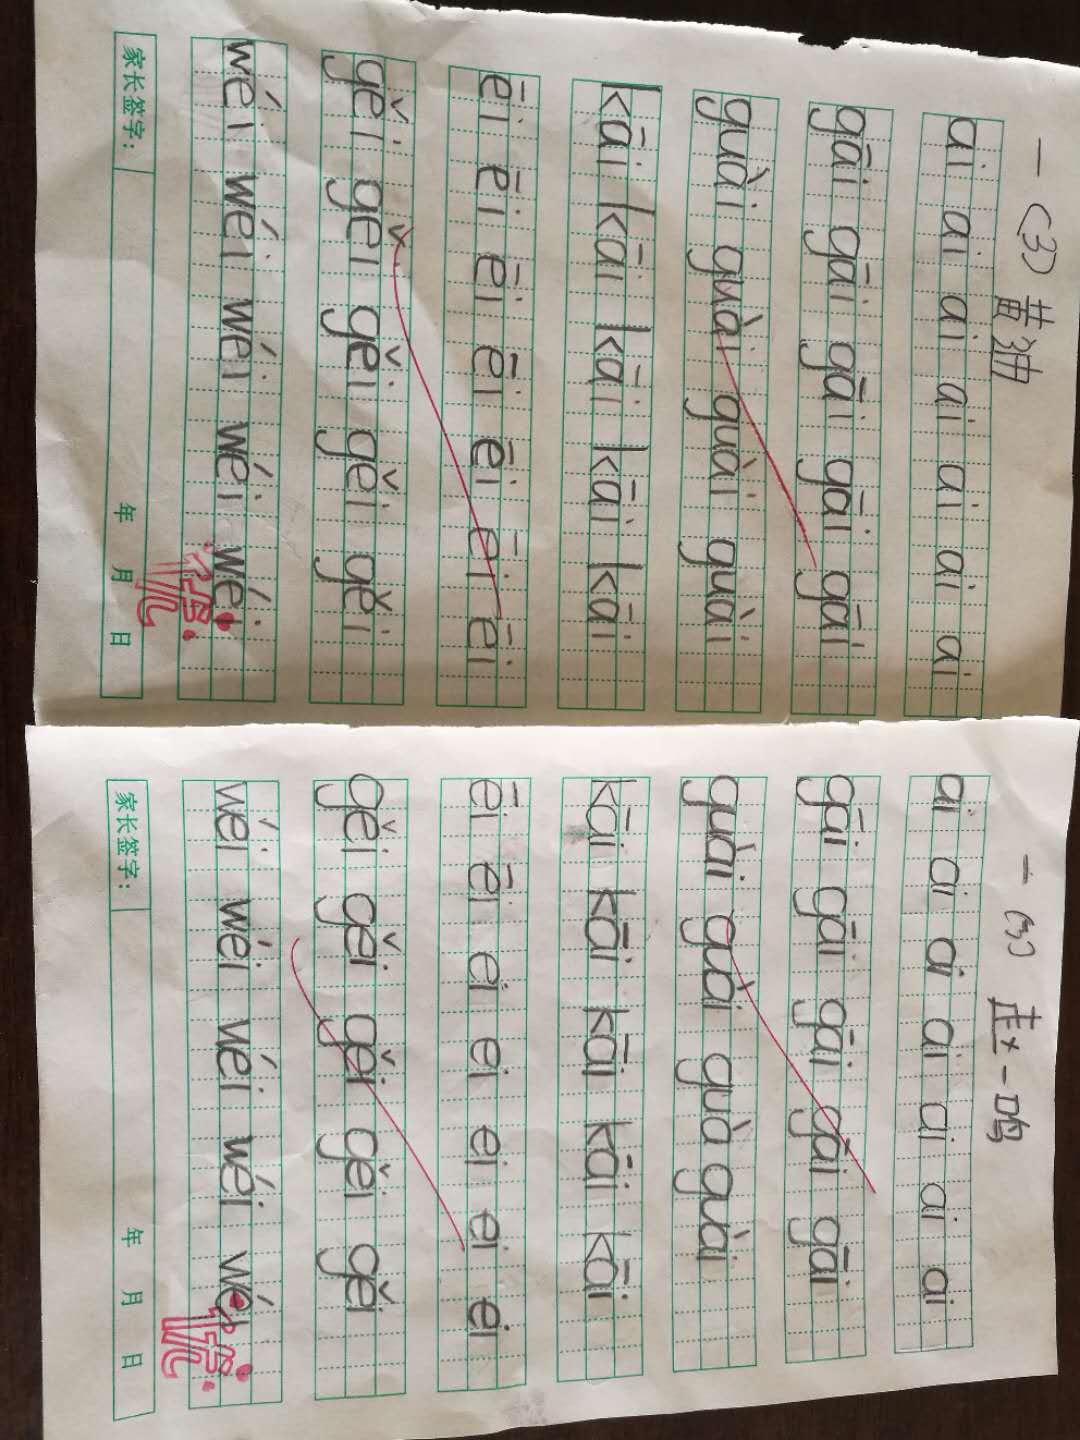 一(3) 黄油
ai ai ai ai ai ai ai
gāi gāi gāi gāi gāi
guài guài guài guài
kāi kāi kāi kāi kāi
ēi ēi ēi ēi ēi ēi ēi
gěi gěi gěi gěi gěi
wéi wéi wéi wéi wéi
家长签字： 年 月 日
一(3) 赵一鸣
ai ai ai ai ai ai ai
gāi gāi gāi gāi gāi
guài guài guà guài
kāi kāi kāi kāi kāi
ēi ēi ei ei ei ei ei
gěi gěi gěi gěi gěi
wéi wéi wéi wéi wéi
家长签字： 年 月 日